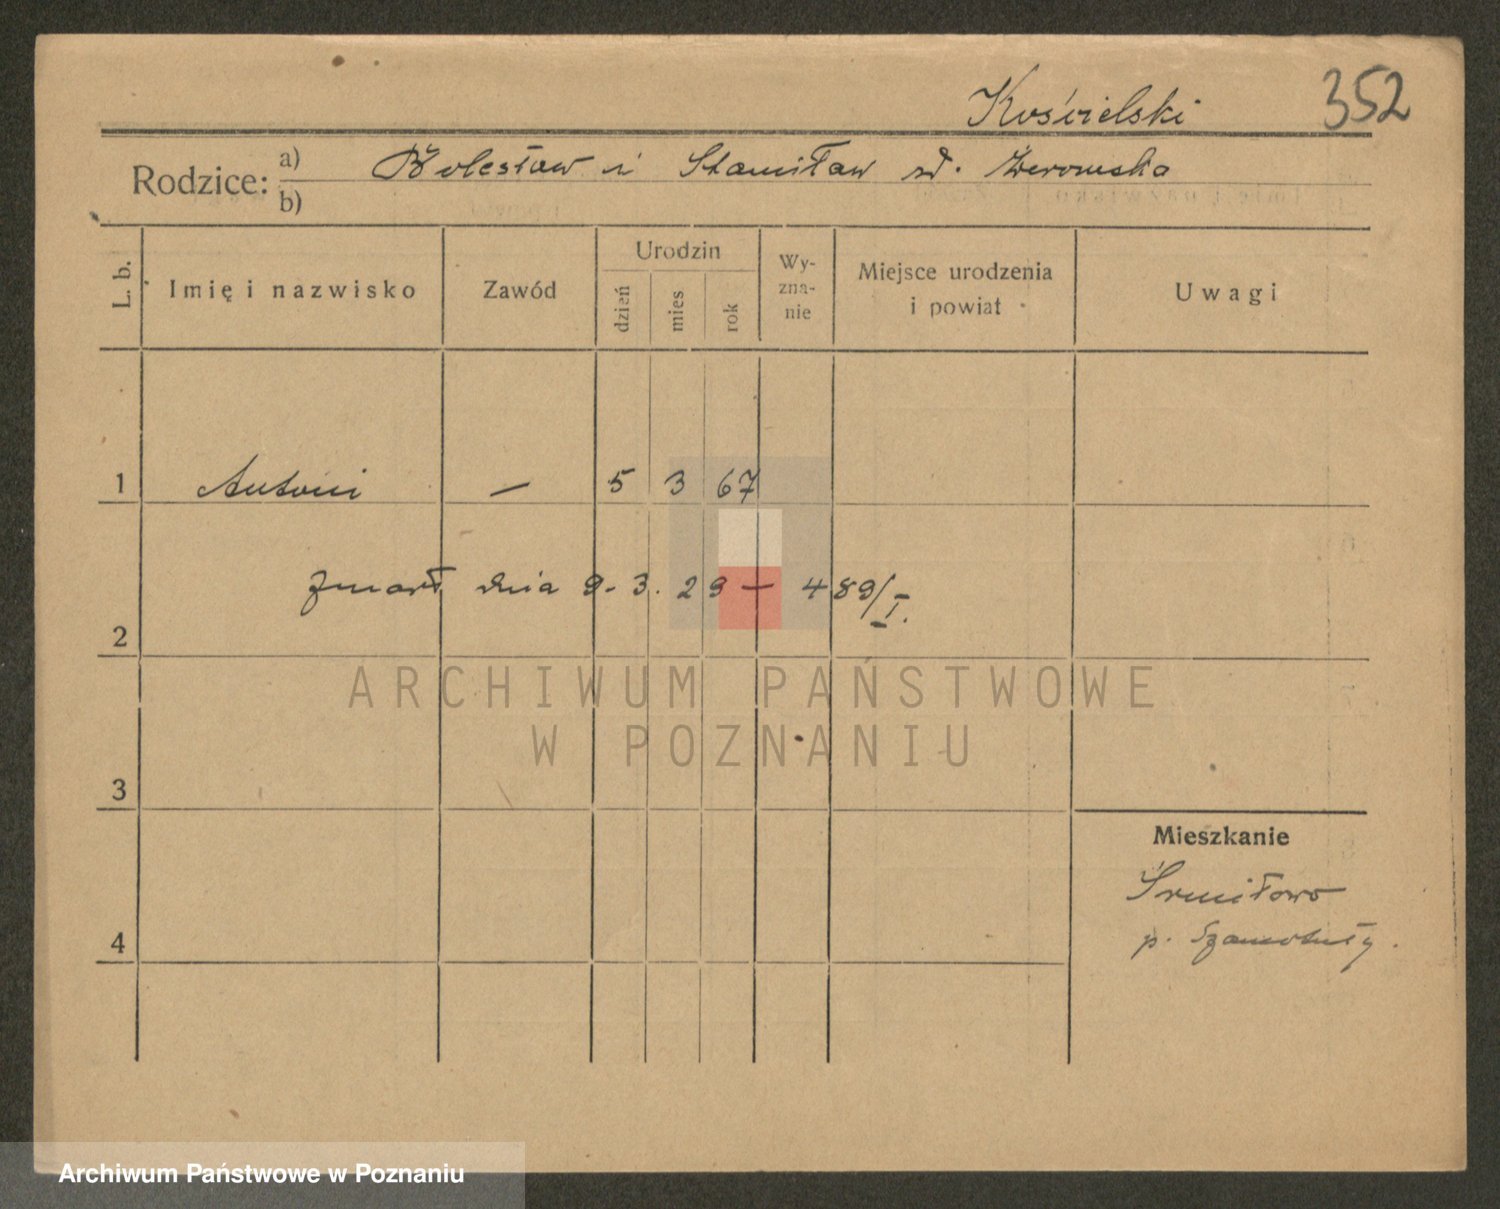 352
Kościelski
Rodzice: a) Bolesław i Stanisław
b)
L. b.
Imię i nazwisko
Zawód
Urodzin
dzień
mies
rok
Wy-
zna-
nie
Miejsce urodzenia
i powiat
Uwagi
1 Antoni — 5 3 67
zmarł dnia 9. 3. 29 — 489/I.
2
ARCHIWUM PAŃSTWOWE
W POZNANIU
3
Mieszkanie
Śmiłowo
p. Szamotuły.
4
Archiwum Państwowe w Poznaniu